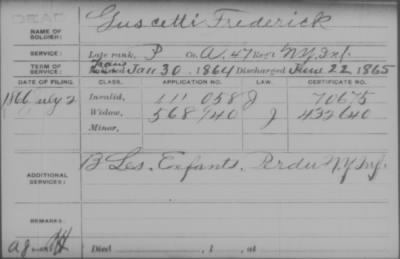 DEAD
Guscetti Frederick
NAME OF SOLDIER:
SERVICE: Late rank, P Co. A, 47 Reg't N.Y. Inf.
TERM OF SERVICE: Trans Jan 30, 1864 Discharged June 22, 1865
DATE OF FILING. CLASS. APPLICATION NO. LAW. CERTIFICATE NO.
1866 July 2 Invalid, 111 058 J 70675
Widow, 568940 J 432640
Minor,
ADDITIONAL SERVICES: B Les. Enfants. Perdu N.Y. Inf.
REMARKS:
Died , 1 , at